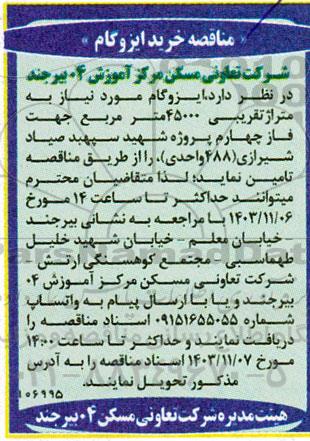 « مناقصه خرید ایزوگام »
شرکت تعاونی مسکن مرکز آموزش ۰۴ بیرجند
در نظر دارد، ایزوگام مورد نیاز به
متراژ تقریبی ۴۵۰۰۰متر مربع جهت
فاز چهارم پروژه شهید سپهبد صیاد
شیرازی(۴۸۸واحدی)، را از طریق مناقصه
تامین نماید؛ لذا متقاضیان محترم
میتوانند حداکثر تا ساعت ۱۴ مورخ
۱۴۰۳/۱۱/۰۶ با مراجعه به نشانی بیرجند
- خیابان معلم - خیابان شهید خلیل
طهماسبی - مجتمع کوهسنگی ارتش -
شرکت تعاونی مسکن مرکز آموزش ۰۴
بیرجند و یا با ارسال پیام به واتساپ
شماره ۰۹۱۵۱۶۵۵۰۵۵ اسناد مناقصه را
دریافت نمایند و حداکثر تا ساعت ۱۴:۰۰
مورخ ۱۴۰۳/۱۱/۰۷ اسناد مناقصه را به آدرس
مذکور تحویل نمایند.
۱۰۶۹۹۵
هیئت مدیره شرکت تعاونی مسکن ۰۴ بیرجند